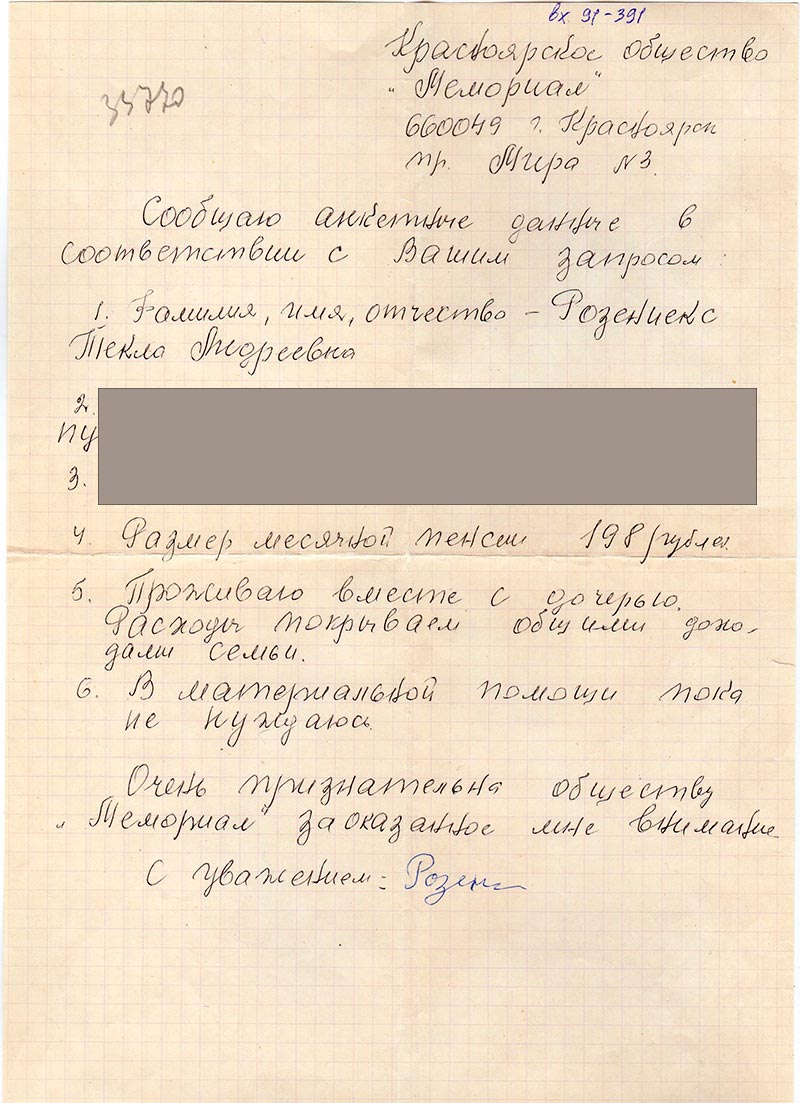 вх 91-391
Красноярское общество
„Мемориал"
660049 г. Красноярск
пр. Мира №3.
33770
Сообщаю анкетные данные в
соответствии с Вашим запросом:
1. Фамилия, имя, отчество – Розениекс
Текла Андреевна
2.
пу
3.
4. Размер месячной пенсии 198 рублей
5. Проживаю вместе с дочерью.
Расходы покрываем общими дохо-
дами семьи.
6. В материальной помощи пока
не нуждаюсь.
Очень признательна обществу
„Мемориал" за оказанное мне внимание
С уважением: Розен